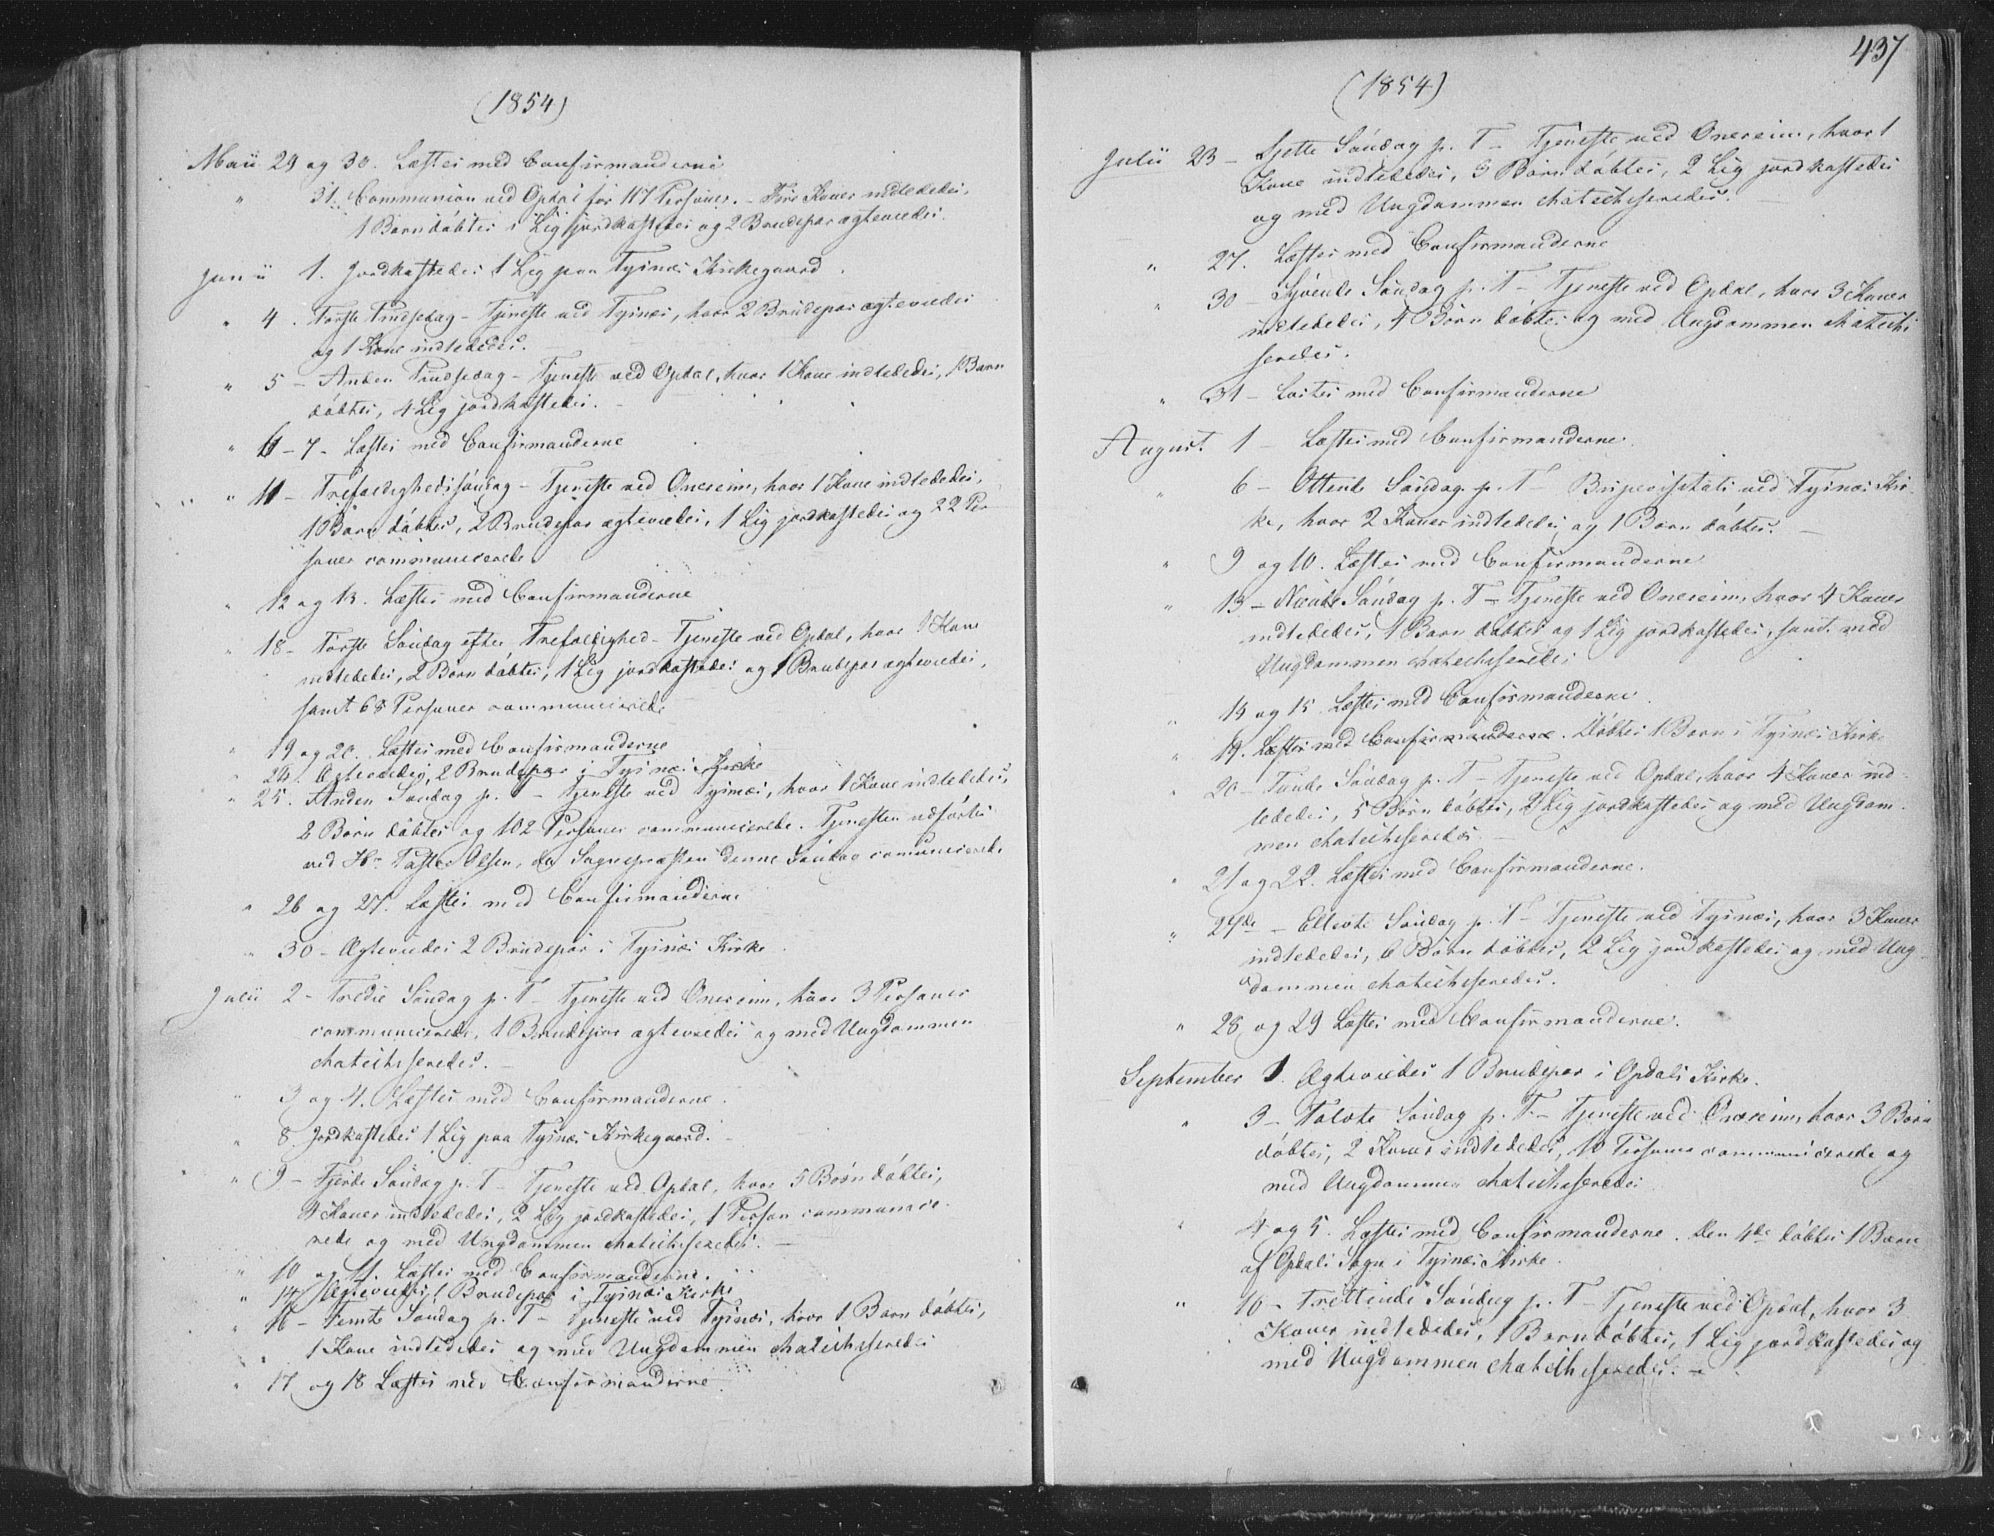 (1854)
Maii 29 og 30. Læstes med Confirmanderne
" 31. Communion ved Opdal for 117 Personer. – Fire Koner indlededes,
1 Barn døbtes 1 Lig jordkastedes og 2 Brudepar ægteviedes.
Junii 1. Jordkastedes 1 Lig paa Tysnæs Kirkegaard.
" 4. Første Pindsedag – Tjeneste ved Tysnæs, hvor 2 Brudepar ægteviedes
og 1 Kone indlededes. –
" 5 – Anden Pindsedag – Tjeneste ved Opdal, hvor 1 Kone indlededes, 1 Barn
døbtes, 4 Lig jordkastedes. –
" 6 – 7 – Læstes med Confirmanderne
" 11 – Trefoldighedssøndag – Tjeneste ved Onereim, hvor 1 Kone indlededes,
1 Barn døbtes, 2 Brudepar ægteviedes, 1 Lig jordkastedes og 22 Per-
soner communicerede
" 12 og 13. Læstes med Confirmanderne
" 18 – Første Søndag efter Trefoldighed – Tjeneste ved Opdal, hvor 1 Kone
indlededes, 2 Børn døbtes, 1 Lig jordkastedes og 1 Brudepar ægteviedes,
samt 68 Personer communicerede
" 19 og 20. Læstes med Confirmanderne
" 24. Ægteviedes 2 Brudepar i Tysnæs Kirke
" 25. Anden Søndag p. T – Tjeneste ved Tysnæs, hvor 1 Kone indlededes,
2 Børn døbtes og 102 Personer communicerede. Tjenesten udførtes
ved Hr. Pastor Olsen, da Sognepræsten denne Søndag communicerede
" 26 og 27. Læstes med Confirmanderne
" 30 – Ægteviedes 2 Brudepar i Tysnæs Kirke
Julii 2 – Tredie Søndag p. T – Tjeneste ved Onereim, hvor 3 Personer
communicerede, 1 Brudepar ægteviedes og med Ungdommen
chatechiseredes. –
" 3 og 4. Læstes med Confirmanderne.
" 8. Jordkastedes 1 Lig paa Tysnæs Kirkegaard. –
" 9 – Fjerde Søndag p. T – Tjeneste ved Opdal, hvor 5 Børn døbtes,
4 Koner indlededes, 2 Lig jordkastedes, 1 Person communice-
rede og med Ungdommen chatechiseredes. –
" 10 og 11. Læstes med Confirmanderne.
" 14 Ægteviedes 1 Brudepar i Tysnæs Kirke
" 16 – Femte Søndag p. T – Tjeneste ved Tysnæs, hvor 1 Barn døbtes,
1 Kone indlededes og med Ungdommen chatechiseredes
" 17 og 18 Læstes med Confirmanderne
437
(1854)
Julii 23 – Sjette Søndag p. T – Tjeneste ved Onereim, hvor 1
Kone indlededes, 3 Børn døbtes, 2 Lig jordkastedes
og med Ungdommen chatechiseredes. –
" 27. Læstes med Confirmanderne
" 30 – Syvende Søndag p. T – Tjeneste ved Opdal, hvor 3 Koner
indlededes, 4 Børn døbtes og med Ungdommen chatechi
seredes.
" 31 – Læstes med Confirmanderne
August 1 – Læstes med Confirmanderne.
" 6 – Ottende Søndag p. T – Bispevisitats ved Tysnæs Kir-
ke, hvor 2 Koner indlededes og 1 Barn døbtes. –
" 9 og 10. Læstes med Confirmanderne
" 13 – Niende Søndag p. T – Tjeneste ved Onereim, hvor 4 Koner
indlededes, 1 Barn døbtes og 1 Lig jordkastedes, samt med
Ungdommen chatechiseredes
" 14 og 15 Læstes med Confirmanderne.
" 19. Læstes med Confirmanderne. Døbtes 1 Barn i Tysnæs Kirke
" 20 – Tiende Søndag p. T – Tjeneste ved Opdal, hvor 4 Koner ind-
lededes, 5 Børn døbtes, 2 Lig jordkastedes og med Ungdom-
men chatechiseredes. –
" 21 og 22. Læstes med Confirmanderne.
" 27de – Ellevte Søndag p. T – Tjeneste ved Tysnæs, hvor 3 Koner
indlededes, 6 Børn døbtes, 2 Lig jordkastedes og med Ung-
dommen chatechiseredes.
" 28 og 29 Læstes med Confirmanderne.
September 1. Ægteviedes 1 Brudepar i Opdals Kirke.
" 3 – Tolvte Søndag p. T. – Tjeneste ved Onereim, hvor 3 Børn
døbtes, 2 Koner indlededes, 10 Personer communicerede og
med Ungdommen chatechiseredes
" 4 og 5. Læstes med Confirmanderne. Den 4de døbtes 1 Barn
af Opdals Sogn i Tysnæs Kirke.
" 10 – Trettende Søndag p. T – Tjeneste ved Opdal, hvor 3
Koner indlededes, 1 Barn døbtes, 1 Lig jordkastedes og
med Ungdommen chatechiseredes. –